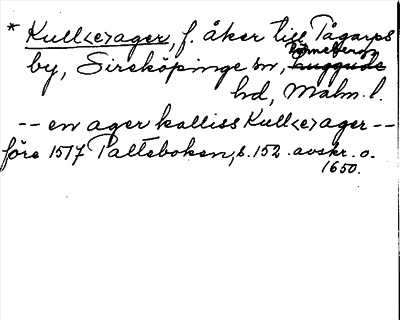 * Kull<e>ager, f. åker till Tågarps
by, Sireköpinge sn, Rönneberga
hd, Malm. l.
-- en ager kalliss Kull<e>ager --
före 1517 Palteboken, s. 152. avskr. o.
1650.